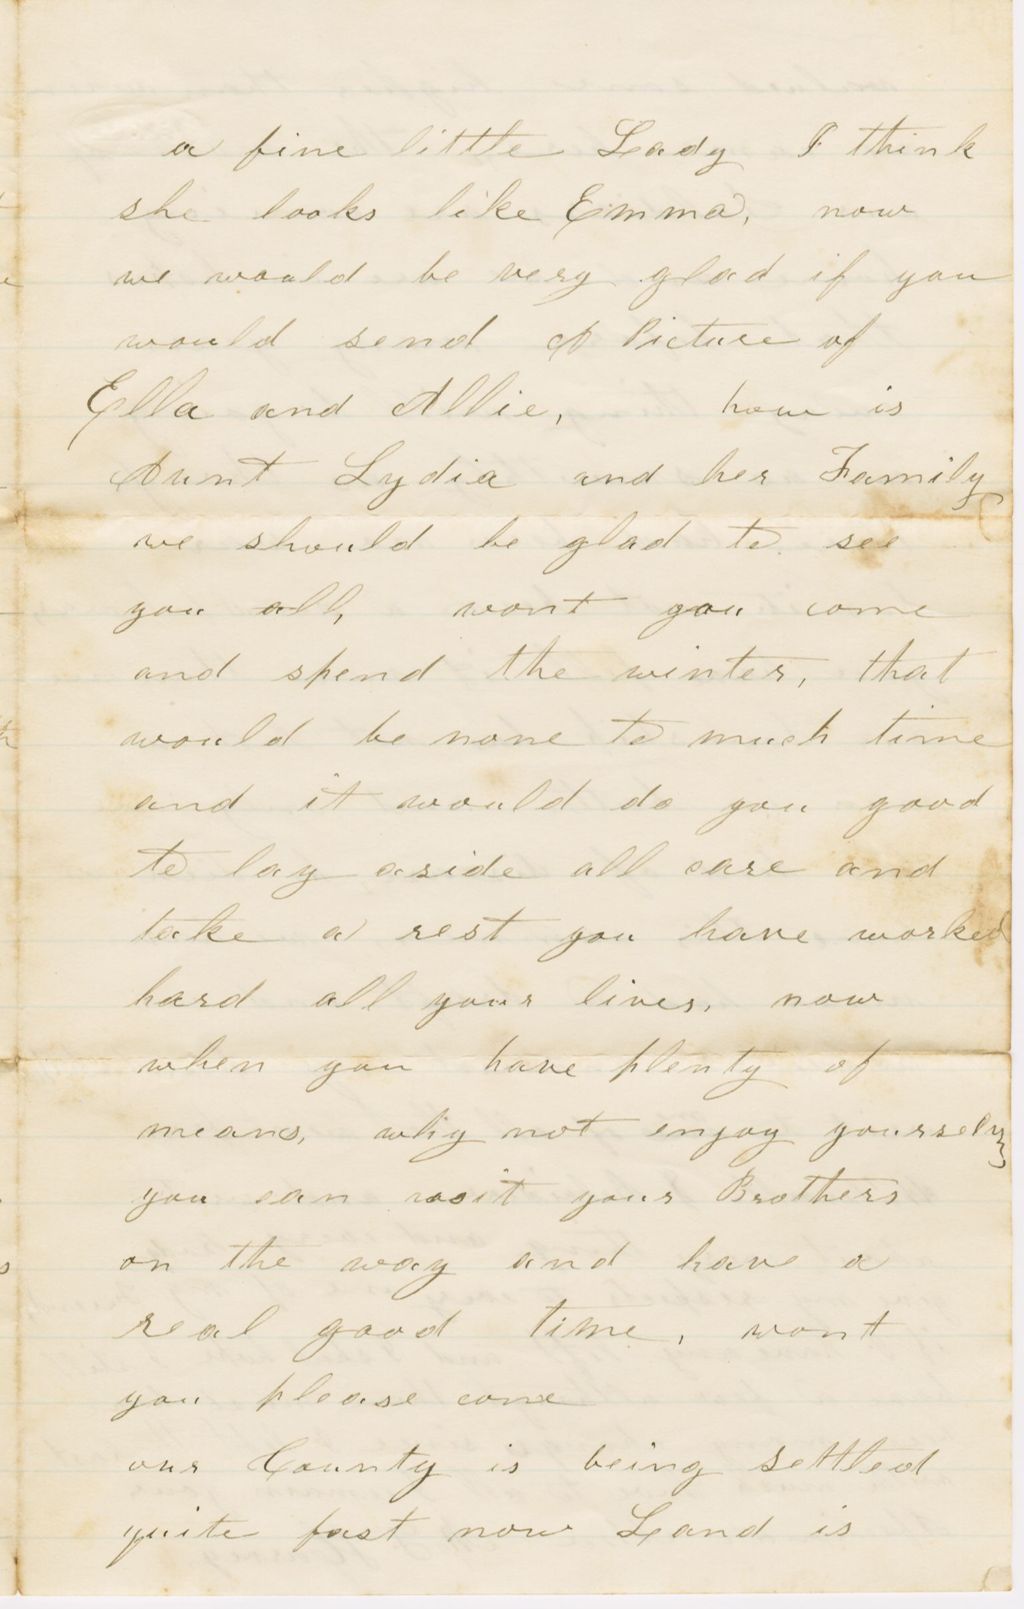 a fine little Lady I think
she looks like Emma, now
we would be very glad if you
would send A Picture of
Ella and Allie, how is
Aunt Lydia and her Family
we should be glad to see
you all, wont you come
and spend the winter, that
would be none to much time
and it would do you good
to lay aside all care and
take a rest you have worked
hard all your lives, now
when you have plenty of
means, why not enjoy yourselvs
you can visit your Brothers
on the way and have a
real good time, wont
you please come
our County is being settled
quite fast now Land is